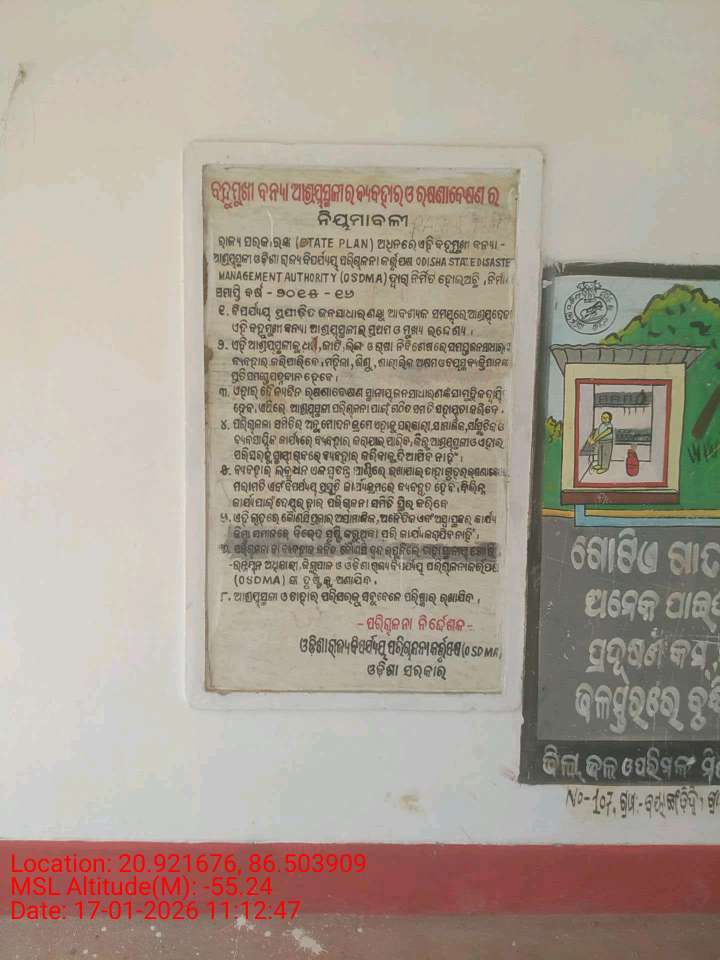 ବହୁମୁଖୀ ବନ୍ୟା ଆଶ୍ରୟସ୍ଥଳୀର ବ୍ୟବହାର ଓ ରକ୍ଷଣାବେକ୍ଷଣ ର
ନିୟମାବଳୀ
ରାଜ୍ୟ ସରକାରଙ୍କ (STATE PLAN) ଅଧିନରେ ଏହି ବହୁମୁଖୀ ବନ୍ୟା -
ଆଶ୍ରୟସ୍ଥଳୀ ଓଡ଼ିଶା ରାଜ୍ୟ ବିପର୍ଯ୍ୟୟ ପରିଚାଳନା କର୍ତ୍ତୃପକ୍ଷ ODISHA STATE DISASTE
MANAGEMENT AUTHORITY (OSDMA) ଦ୍ୱାରା ନିର୍ମିତ ହୋଇଅଛି, ନିର୍ମା
ସମାପ୍ତି ବର୍ଷ - ୨୦୧୫ - ୧୬
୧. ବିପର୍ଯ୍ୟୟ ପ୍ରପୀଡ଼ିତ ଜନସାଧାରଣଙ୍କୁ ଆବଶ୍ୟକ ସମୟରେ ଆଶ୍ରୟଦେବା
ଏହି ବହୁମୁଖୀ ବନ୍ୟା ଆଶ୍ରୟସ୍ଥଳୀର ପ୍ରଥମ ଓ ମୁଖ୍ୟ ଉଦ୍ଦେଶ୍ୟ ।
୨. ଏହି ଆଶ୍ରୟସ୍ଥଳୀକୁ ଧର୍ମ, ଜାତି, ଲିଙ୍ଗ ଓ ଭାଷା ନିର୍ବିଶେଷରେ ସମସ୍ତ ଜନସାଧାରଣ
ବ୍ୟବହାର କରିପାରିବେ, ମହିଳା, ଶିଶୁ, ଶାରୀରିକ ଅକ୍ଷମ ଓ ବୟସ୍କ ବ୍ୟକ୍ତିମାନଙ୍କ
ପ୍ରତି ସମସ୍ତେ ଯତ୍ନବାନ ହେବେ ।
୩. ଏହାର ଦୈନନ୍ଦିନ ରକ୍ଷଣାବେକ୍ଷଣ ସ୍ଥାନୀୟ ଜନସାଧାରଣଙ୍କ ସାମୂହିକ ଦାୟିତ୍ୱ
ହେବ, ଏଥିରେ ଆଶ୍ରୟସ୍ଥଳୀ ପରିଚାଳନା ପାଇଁ ଗଠିତ ସମିତି ସହାୟତା କରିବେ ।
୪. ପରିଚାଳନା ସମିତିର ଅନୁମୋଦନ କ୍ରମେ ଏହାକୁ ସରକାରୀ, ସାମାଜିକ, ସାଂସ୍କୃତିକ ଓ
ବ୍ୟବସାୟିକ କାର୍ଯ୍ୟରେ ବ୍ୟବହାର କରାଯାଇ ପାରିବ, କିନ୍ତୁ ଆଶ୍ରୟସ୍ଥଳୀ ଓ ଏହାର
ପରିସରକୁ ସ୍ଥାୟୀ ଭାବରେ ବ୍ୟବହାର କରିବାକୁ ଦିଆଯିବ ନାହିଁ ।
୫. ବ୍ୟବହାର ଲବ୍ଧ ଧନ ଏକ ସ୍ୱତନ୍ତ୍ର ପାଣ୍ଠିରେ ରଖାଯାଇ ତାହା ଗୃହର ରକ୍ଷଣାବେକ୍ଷଣ
ମରାମତି ଏବଂ ବିପର୍ଯ୍ୟୟ ପ୍ରସ୍ତୁତି କାର୍ଯ୍ୟକ୍ରମରେ ବ୍ୟବହୃତ ହେବ, ବିଭିନ୍ନ
କାର୍ଯ୍ୟ ପାଇଁ ଦେୟର ହାର ପରିଚାଳନା ସମିତି ସ୍ଥିର କରିବେ
୬. ଏହି ଗୃହରେ କୌଣସି ପ୍ରକାର ଅସାମାଜିକ, ଅନୈତିକ ଏବଂ ଅସ୍ୱାସ୍ଥ୍ୟକର କାର୍ଯ୍ୟ
କିମ୍ବା ସମାଜରେ ବିଭେଦ ସୃଷ୍ଟି କରୁଥିବା ପରି କାର୍ଯ୍ୟ କରାଯିବ ନାହିଁ ।
୭. ପରିଚାଳନା ବା ବ୍ୟବହାର ଜନିତ କୌଣସି
ଉନ୍ନୟନ ଅଧିକାରୀ, ଜିଲ୍ଲାପାଳ ଓ ଓଡ଼ିଶା ରାଜ୍ୟ ବିପର୍ଯ୍ୟୟ ପରିଚାଳନା କର୍ତ୍ତୃପକ୍ଷ
(OSDMA) ଙ୍କ ଦୃଷ୍ଟିକୁ ଅଣାଯିବ ।
୮. ଆଶ୍ରୟସ୍ଥଳୀ ଓ ତାହାର ପରିସରକୁ ସବୁବେଳେ ପରିଷ୍କାର ରଖାଯିବ ।
- ପରିଚାଳନା ନିର୍ଦ୍ଦେଶକ -
ଓଡ଼ିଶା ରାଜ୍ୟ ବିପର୍ଯ୍ୟୟ ପରିଚାଳନା କର୍ତ୍ତୃପକ୍ଷ (OSDMA)
ଓଡ଼ିଶା ସରକାର
ଗୋଟିଏ ଗାତ
ଅନେକ ପାଇଁ
ପ୍ରଦୂଷଣ କମ୍
ଜଳସ୍ତରରେ ବୃଦ୍ଧି
ଜିଲ୍ଲା ଜଳ ଓ ପରିମଳ ମି
No-107, ଗ୍ରାମ-
Location: 20.921676, 86.503909
MSL Altitude(M): -55.24
Date: 17-01-2026 11:12:47